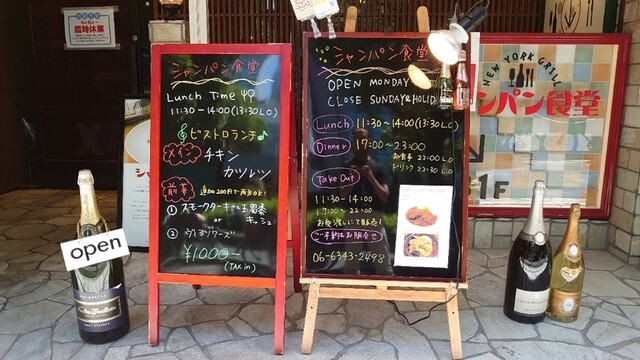 臨時休業
シャンパン食堂
Lunch Time
11:30-14:00(13:30 L.O)
ビストロランチ
メイン
チキン
カツレツ
前菜
追加200円で両方OK!
① スモークターキーと玉葱
or キッシュ
②
¥1000-
(TAX in)
シャンパン食堂
OPEN MONDAY
CLOSE SUNDAY & HOLID
Lunch 11:30~14:00 (13:30 LO)
Dinner 17:00~23:00
お食事 22:00 LO
ドリンク 22:30 LO
Take Out
11:30-14:00
17:00~22:00
お食事にて販売!
ご予約&お問合せ
06-6343-2498
NEW YORK GRILL
ンパン食堂
1F
open